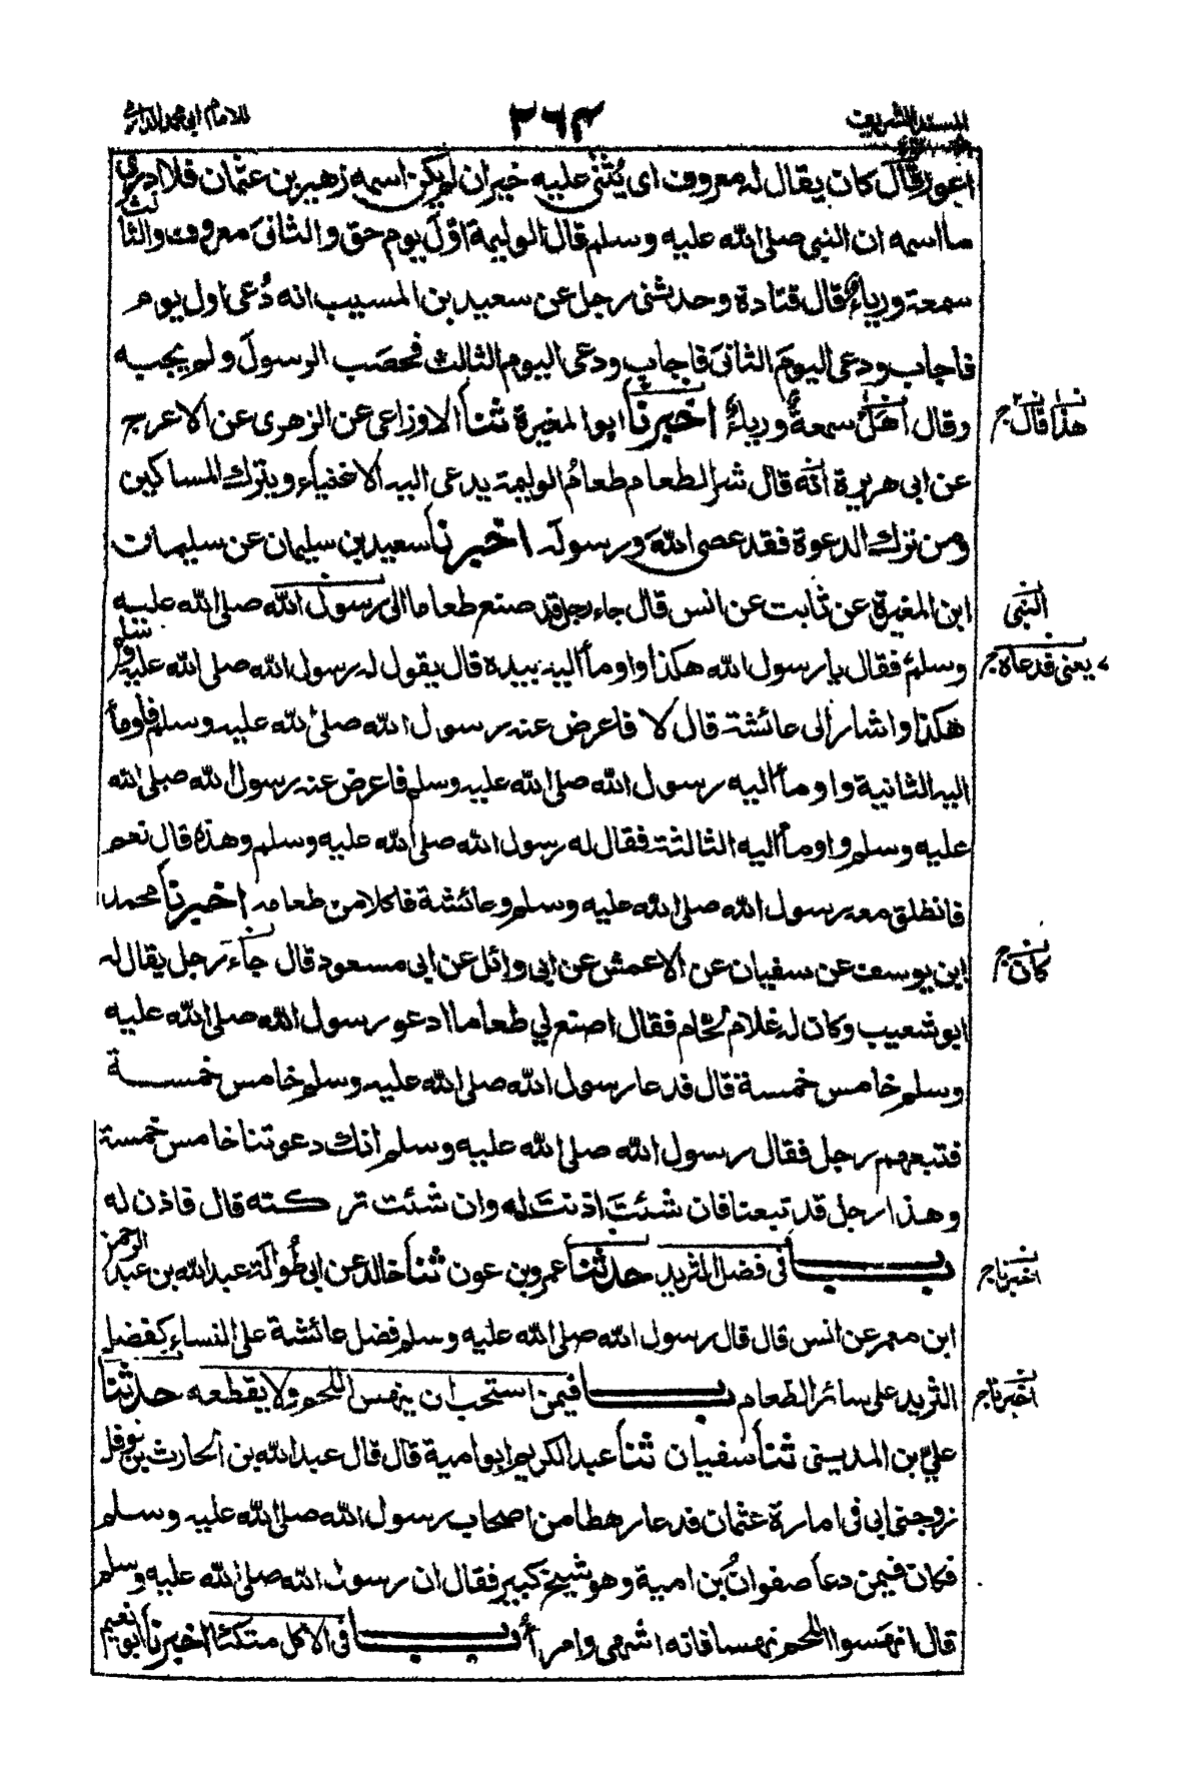 المسند الشريف
٢٦٣
للامام ابي محمد الدارمي
اعور قال كان يقال له معروف اى يُثنى عليه خير ان لم يكن اسمه زهير بن عثمان فلا ادرى
ما اسمه ان النبى صلى الله عليه وسلم قال الوليمة اوّلَ يوم حق والثانىَ معروف والثالث
سمعة ورياء قال قتادة وحدثنى رجل عن سعيد بن المسيب انه دُعى اول يوم
فاجاب ودعى اليومَ الثانىَ فاجاب ودعى اليوم الثالث فحصَب الرسولَ ولم يجبه
وقال اهل سمعةٍ ورياءٍ اخبرنا ابو المغيرة ثنا الاوزاعى عن الزهرى عن الاعرج
هذا قال
عن ابى هريرة انّه قال شر الطعام طعامُ الوليمة يدعى اليه الاغنياء ويترك المساكين
ومن ترك الدعوة فقد عصى اللهَ ورسولَه اخبرنا سعيد بن سليمان عن سليمان
ابن المغيرة عن ثابت عن انس قال جاء رجل قد صنع طعاما الى رسول الله صلى الله عليه
النبى
وسلم فقال يا رسول الله هكذا واومأ اليه بيده قال يقول له رسول الله صلى الله عليه وسلم
يعنى قد عاه
هكذا واشار الى عائشة قال لا فاعرض عنه رسول الله صلى الله عليه وسلم فاومأ
اليه الثانية واومأ اليه رسول الله صلى الله عليه وسلم فاعرض عنه رسول الله صلى الله
عليه وسلم واومأ اليه الثالثة فقال له رسول الله صلى الله عليه وسلم وهذه قال نعم
فانطلق معه رسول الله صلى الله عليه وسلم وعائشة فاكلا من طعامه اخبرنا محمد
ابن يوسف عن سفيان عن الاعمش عن ابى وائل عن ابى مسعود قال جاء رجل يقال له
كان
ابو شعيب وكان له غلام لحّام فقال اصنع لي طعاما ادعو رسول الله صلى الله عليه
وسلم خامس خمسة قال فدعا رسول الله صلى الله عليه وسلم خامس خمسة
فتبعهم رجل فقال رسول الله صلى الله عليه وسلم انك دعوتنا خامس خمسة
وهذا رجل قد تبعنا فان شئتَ اذنتَ له وان شئت تركته قال فاذن له
باب فى فضل الثريد حدثنا عمرو بن عون ثنا خالد عن ابى طُوالة عبد الله بن عبد الرحمن
اخبرنا
ابن معمر عن انس قال قال رسول الله صلى الله عليه وسلم فضل عائشة على النساء كفضل
الثريد على سائر الطعام باب فيمن استحب ان ينهس اللحم ولا يقطعه حدثنا
اخبرنا
علي بن المدينى ثنا سفيان ثنا عبد الكريم ابو امية قال قال عبد الله بن الحارث بن نوفل
زوجنى ابى فى امارة عثمان فدعا رهطا من اصحاب رسول الله صلى الله عليه وسلم
فكان فيمن دعا صفوانُ بن امية وهو شيخ كبير فقال ان رسول الله صلى الله عليه وسلم
قال انهسوا اللحم نهسا فانه اشهى وامرأ باب فى الاكل متكئا اخبرنا ابو نعيم